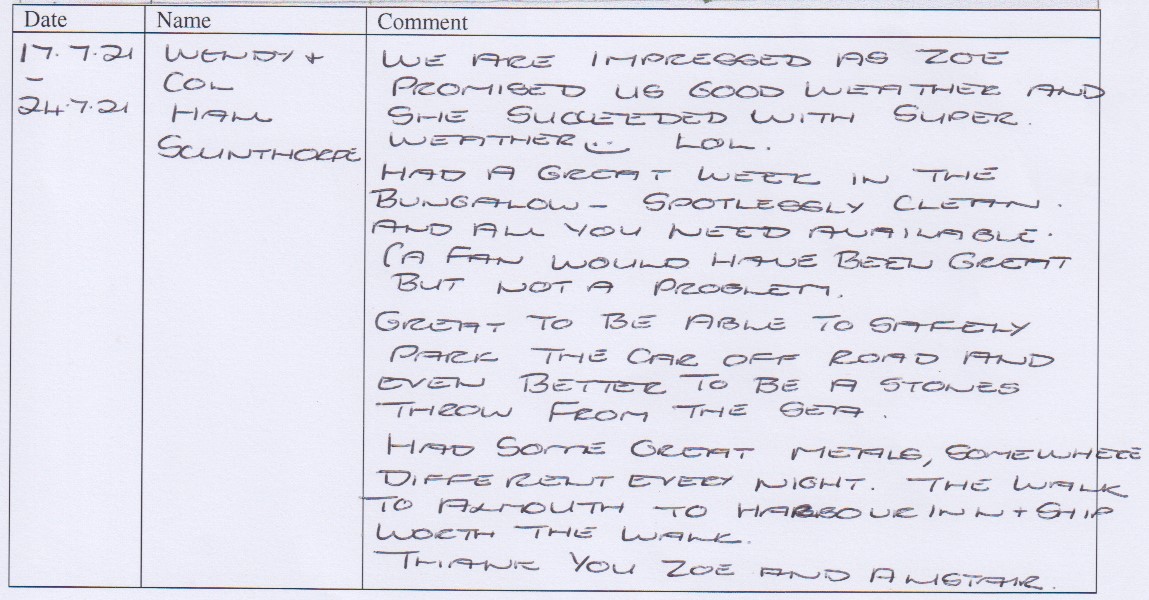 Date Name Comment
17.7.21 WENDY + WE ARE IMPRESSED AS ZOE
- COL PROMISED US GOOD WEATHER AND
24.7.21 HALL SHE SUCCEEDED WITH SUPER.
SCUNTHORPE WEATHER LOL.
HAD A GREAT WEEK IN THE
BUNGALOW - SPOTLESSLY CLEAN.
AND ALL YOU NEED AVAILABLE.
(A FAN WOULD HAVE BEEN GREAT
BUT NOT A PROBLEM.
GREAT TO BE ABLE TO SAFELY
PARK THE CAR OFF ROAD AND
EVEN BETTER TO BE A STONES
THROW FROM THE SEA.
HAD SOME GREAT MEALS, SOMEWHERE
DIFFERENT EVERY NIGHT. THE WALK
TO ALMOUTH TO HARBOUR INN + SHIP
WORTH THE WALK.
THANK YOU ZOE AND ALISTAIR.